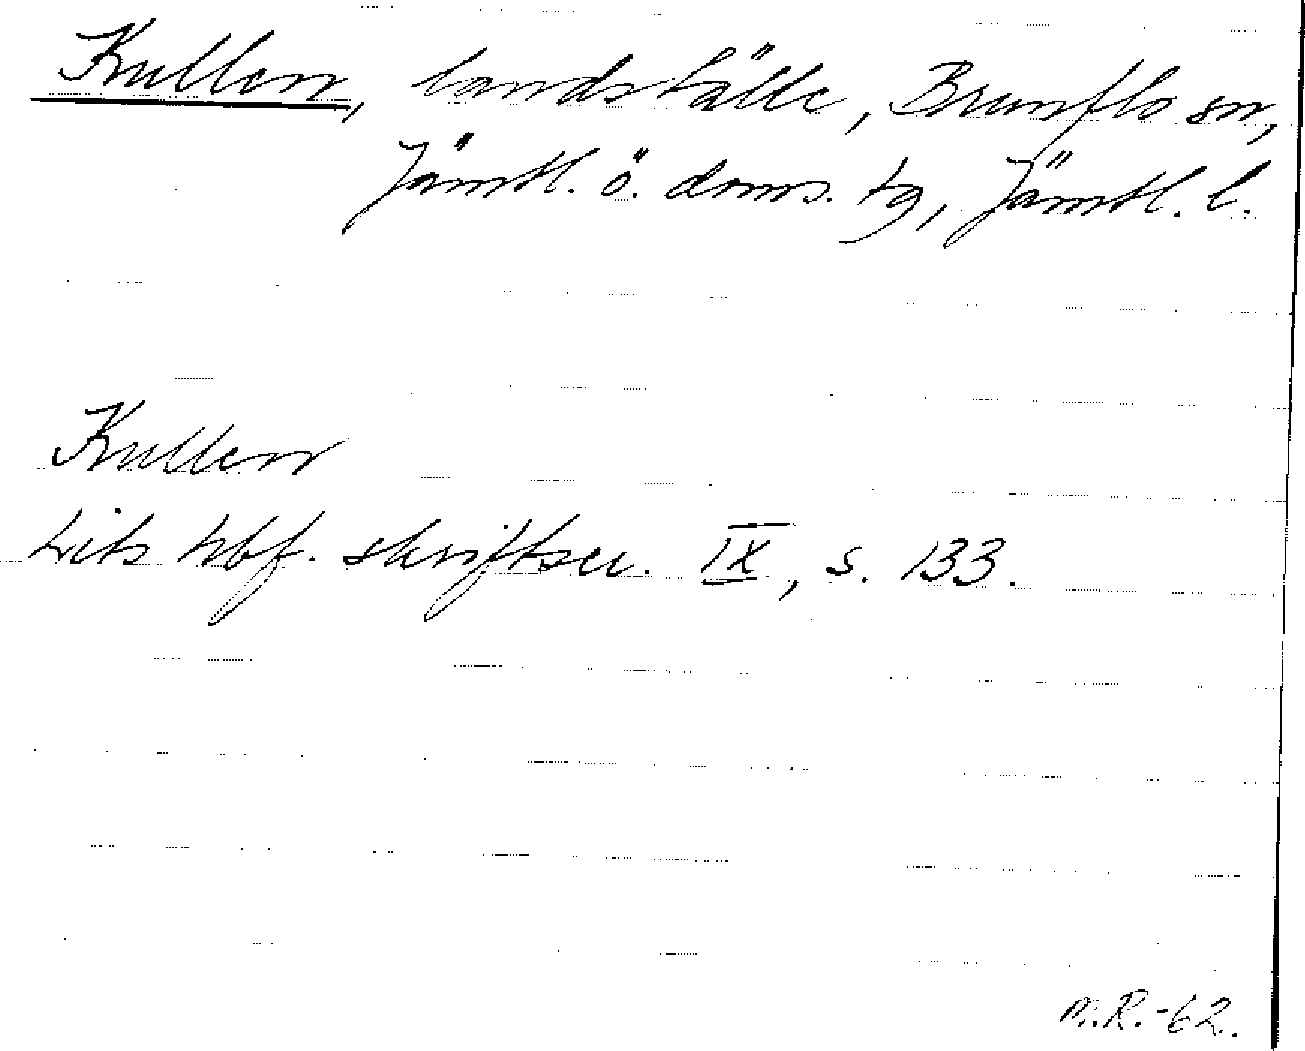 Kullen, landställe, Brunflo sn,
Jämtl. ö. doms. tg, Jämtl. l.
Kullen
Lits hbf. skriftser. IX, s. 133.
M.R.-62.